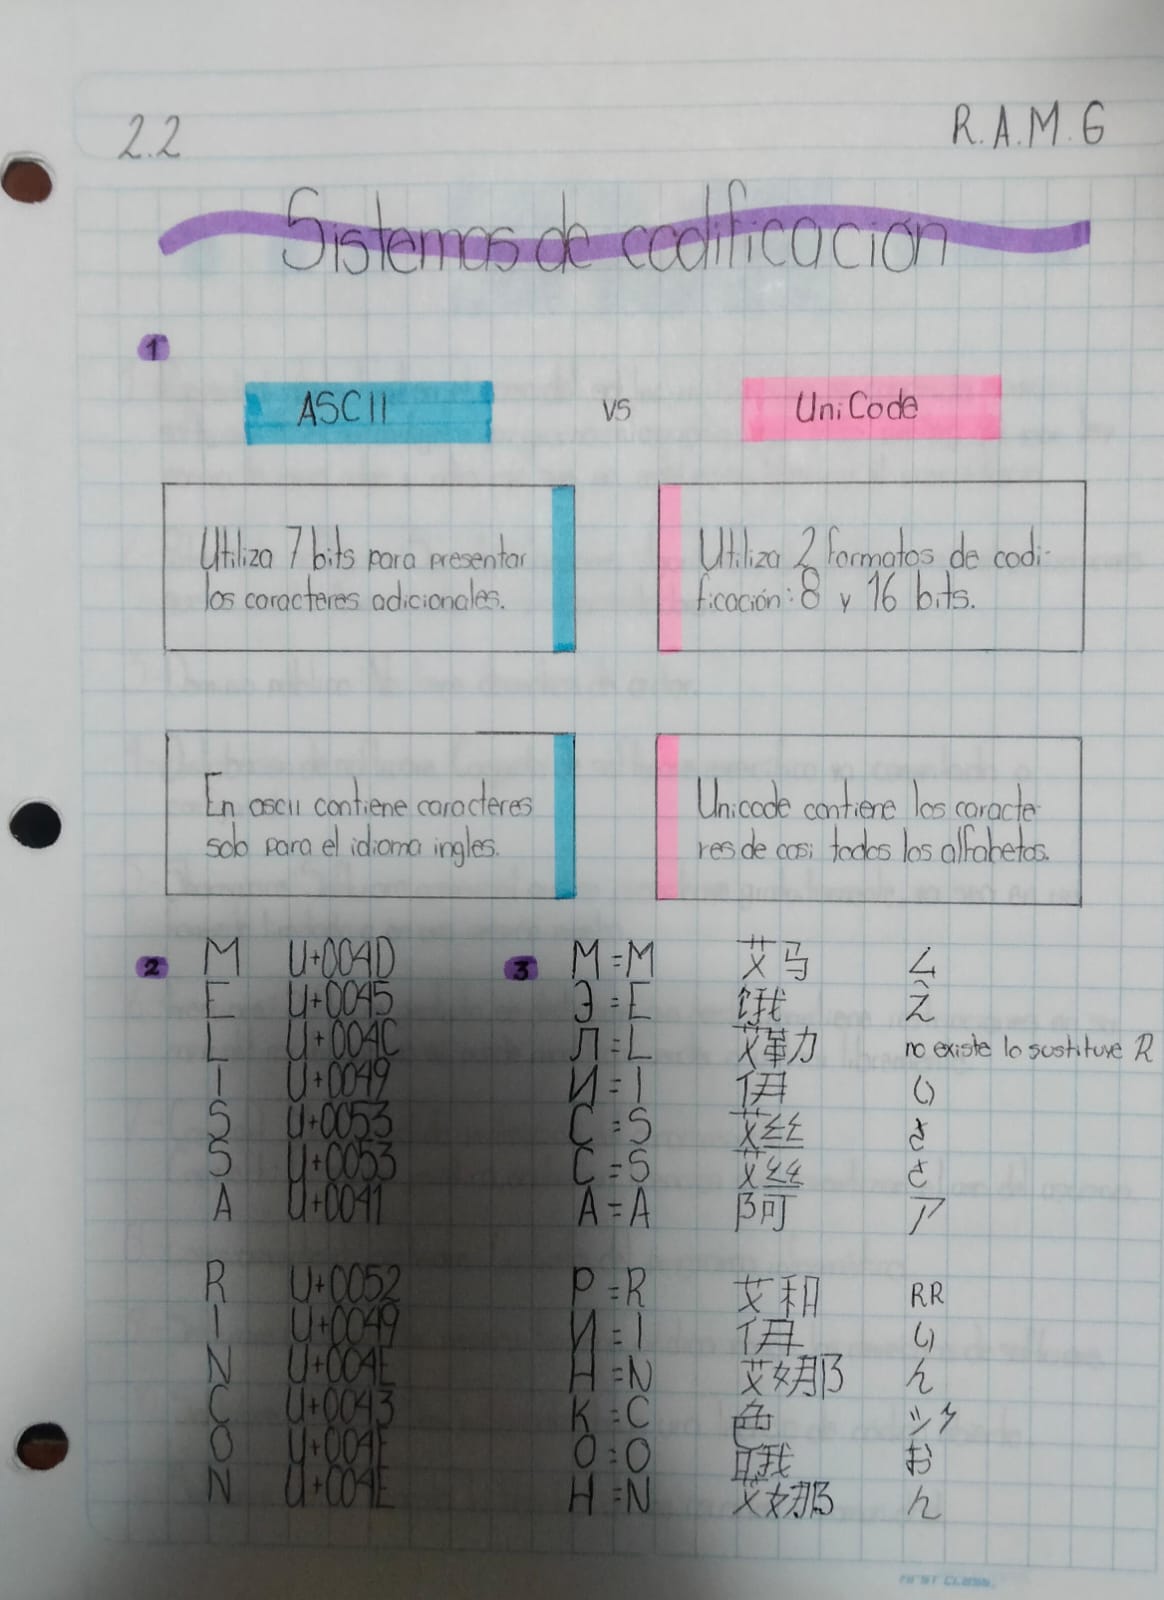 2.2
R.A.M.G
Sistemas de codificacion
1
ASCII vs UniCode
Utiliza 7 bits para presentar
los caracteres adicionales.
Utiliza 2 formatos de codi-
ficación: 8 y 16 bits.
En ascii contiene caracteres
solo para el idioma ingles.
Unicode contiene los caracte-
res de casi todos los alfabetos.
2
M U+004D
E U+0045
L U+004C
I U+0049
S U+0053
S U+0053
A U+0041
R U+0052
I U+0049
N U+004E
C U+0043
O U+004F
N U+004E
3
M = M 艾马 ム
Э = E 饿 え
Л = L 艾革力 no existe lo sustituye R
И = I 伊 い
С = S 艾丝 さ
С = S 艾丝 さ
A = A 阿 ア
Р = R 艾和 RR
И = I 伊 い
Н = N 艾娜 ん
К = C 色 ック
О = O 哦 お
Н = N 艾娜 ん
FIRST CLASS.